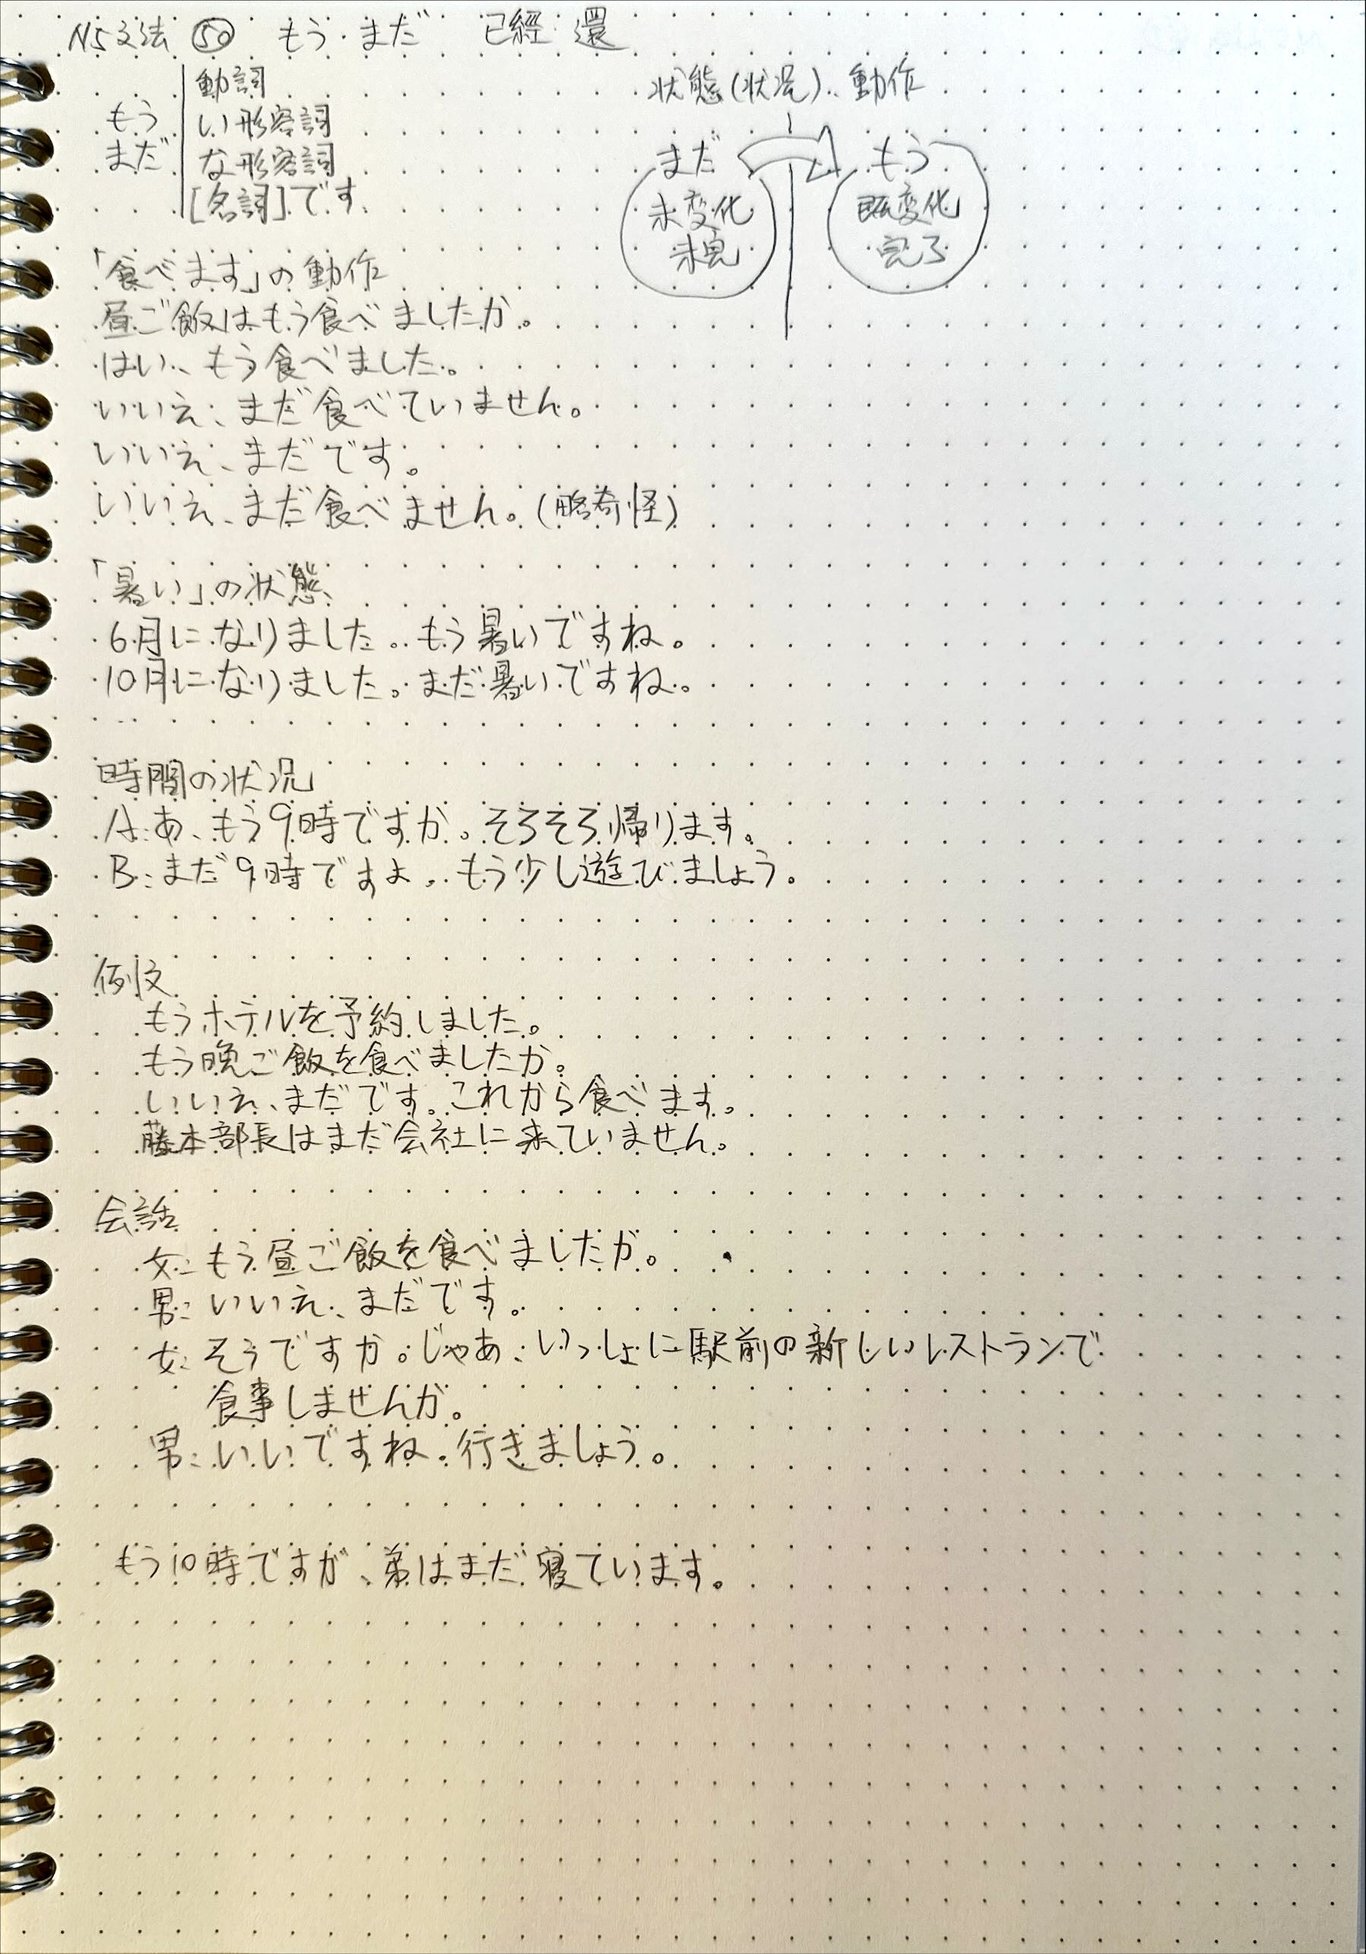 N5文法 ㊿ もう・まだ 已經 還
動詞
もう い形容詞
まだ な形容詞
[名詞]です
状態(状況)、動作
まだ もう
未変化 既変化
未完 完了
「食べます」の動作
昼ご飯はもう食べましたか。
はい、もう食べました。
いいえ、まだ食べていません。
いいえ、まだです。
いいえ、まだ食べません。(略奇怪)
「暑い」の状態
6月になりました。もう暑いですね。
10月になりました。まだ暑いですね。
時間の状況
A:あ、もう9時ですか。そろそろ帰ります。
B:まだ9時ですよ。もう少し遊びましょう。
例文
もうホテルを予約しました。
もう晩ご飯を食べましたか。
いいえ、まだです。これから食べます。
藤本部長はまだ会社に来ていません。
会話
女:もう昼ご飯を食べましたか。
男:いいえ、まだです。
女:そうですか。じゃあ、いっしょに駅前の新しいレストランで
食事しませんか。
男:いいですね。行きましょう。
もう10時ですが、弟はまだ寝ています。